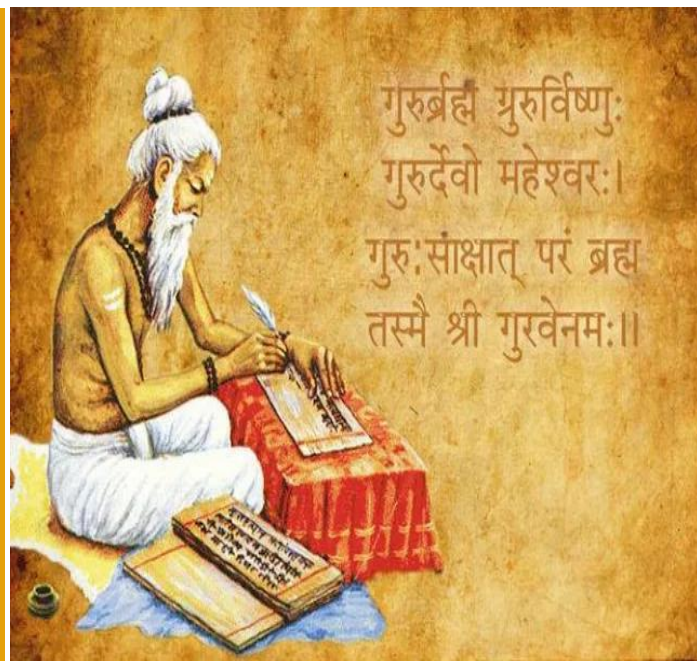 गुरुर्ब्रह्म ग्रुरुर्विष्णु:
गुरुर्देवो महेश्वर:।
गुरु:सांक्षात् परं ब्रह्म
तस्मै श्री गुरवेनम:।।